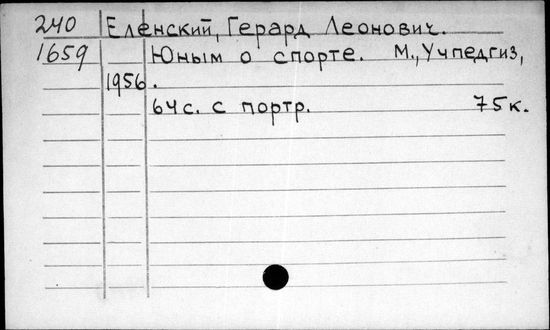 240 Еленский, Герард Леонович.
1659 Юным о спорте. М., Учпедгиз,
1956.
64с. с портр. 75к.